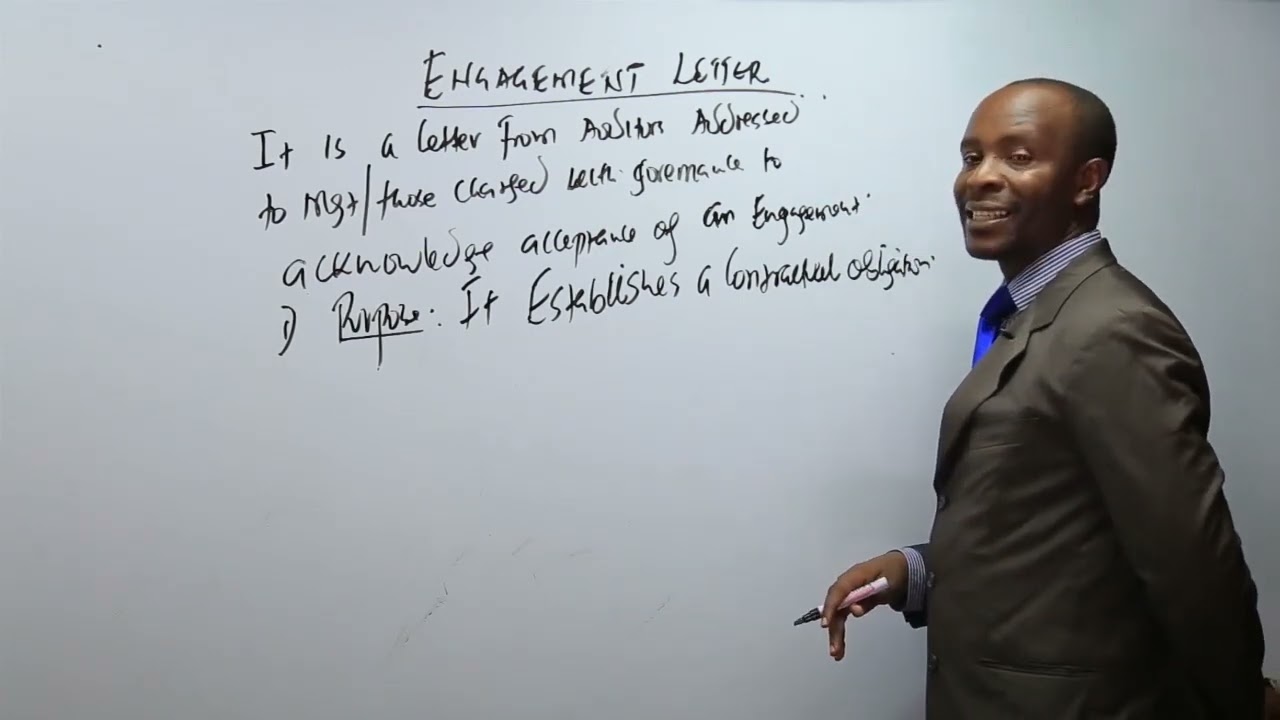 ENGAGEMENT LETTER
It is a letter from Auditors Addressed
to Mgt/those charged with governance to
acknowledge acceptance of an Engagement.
1) Purpose: It Establishes a Contractual obligation.